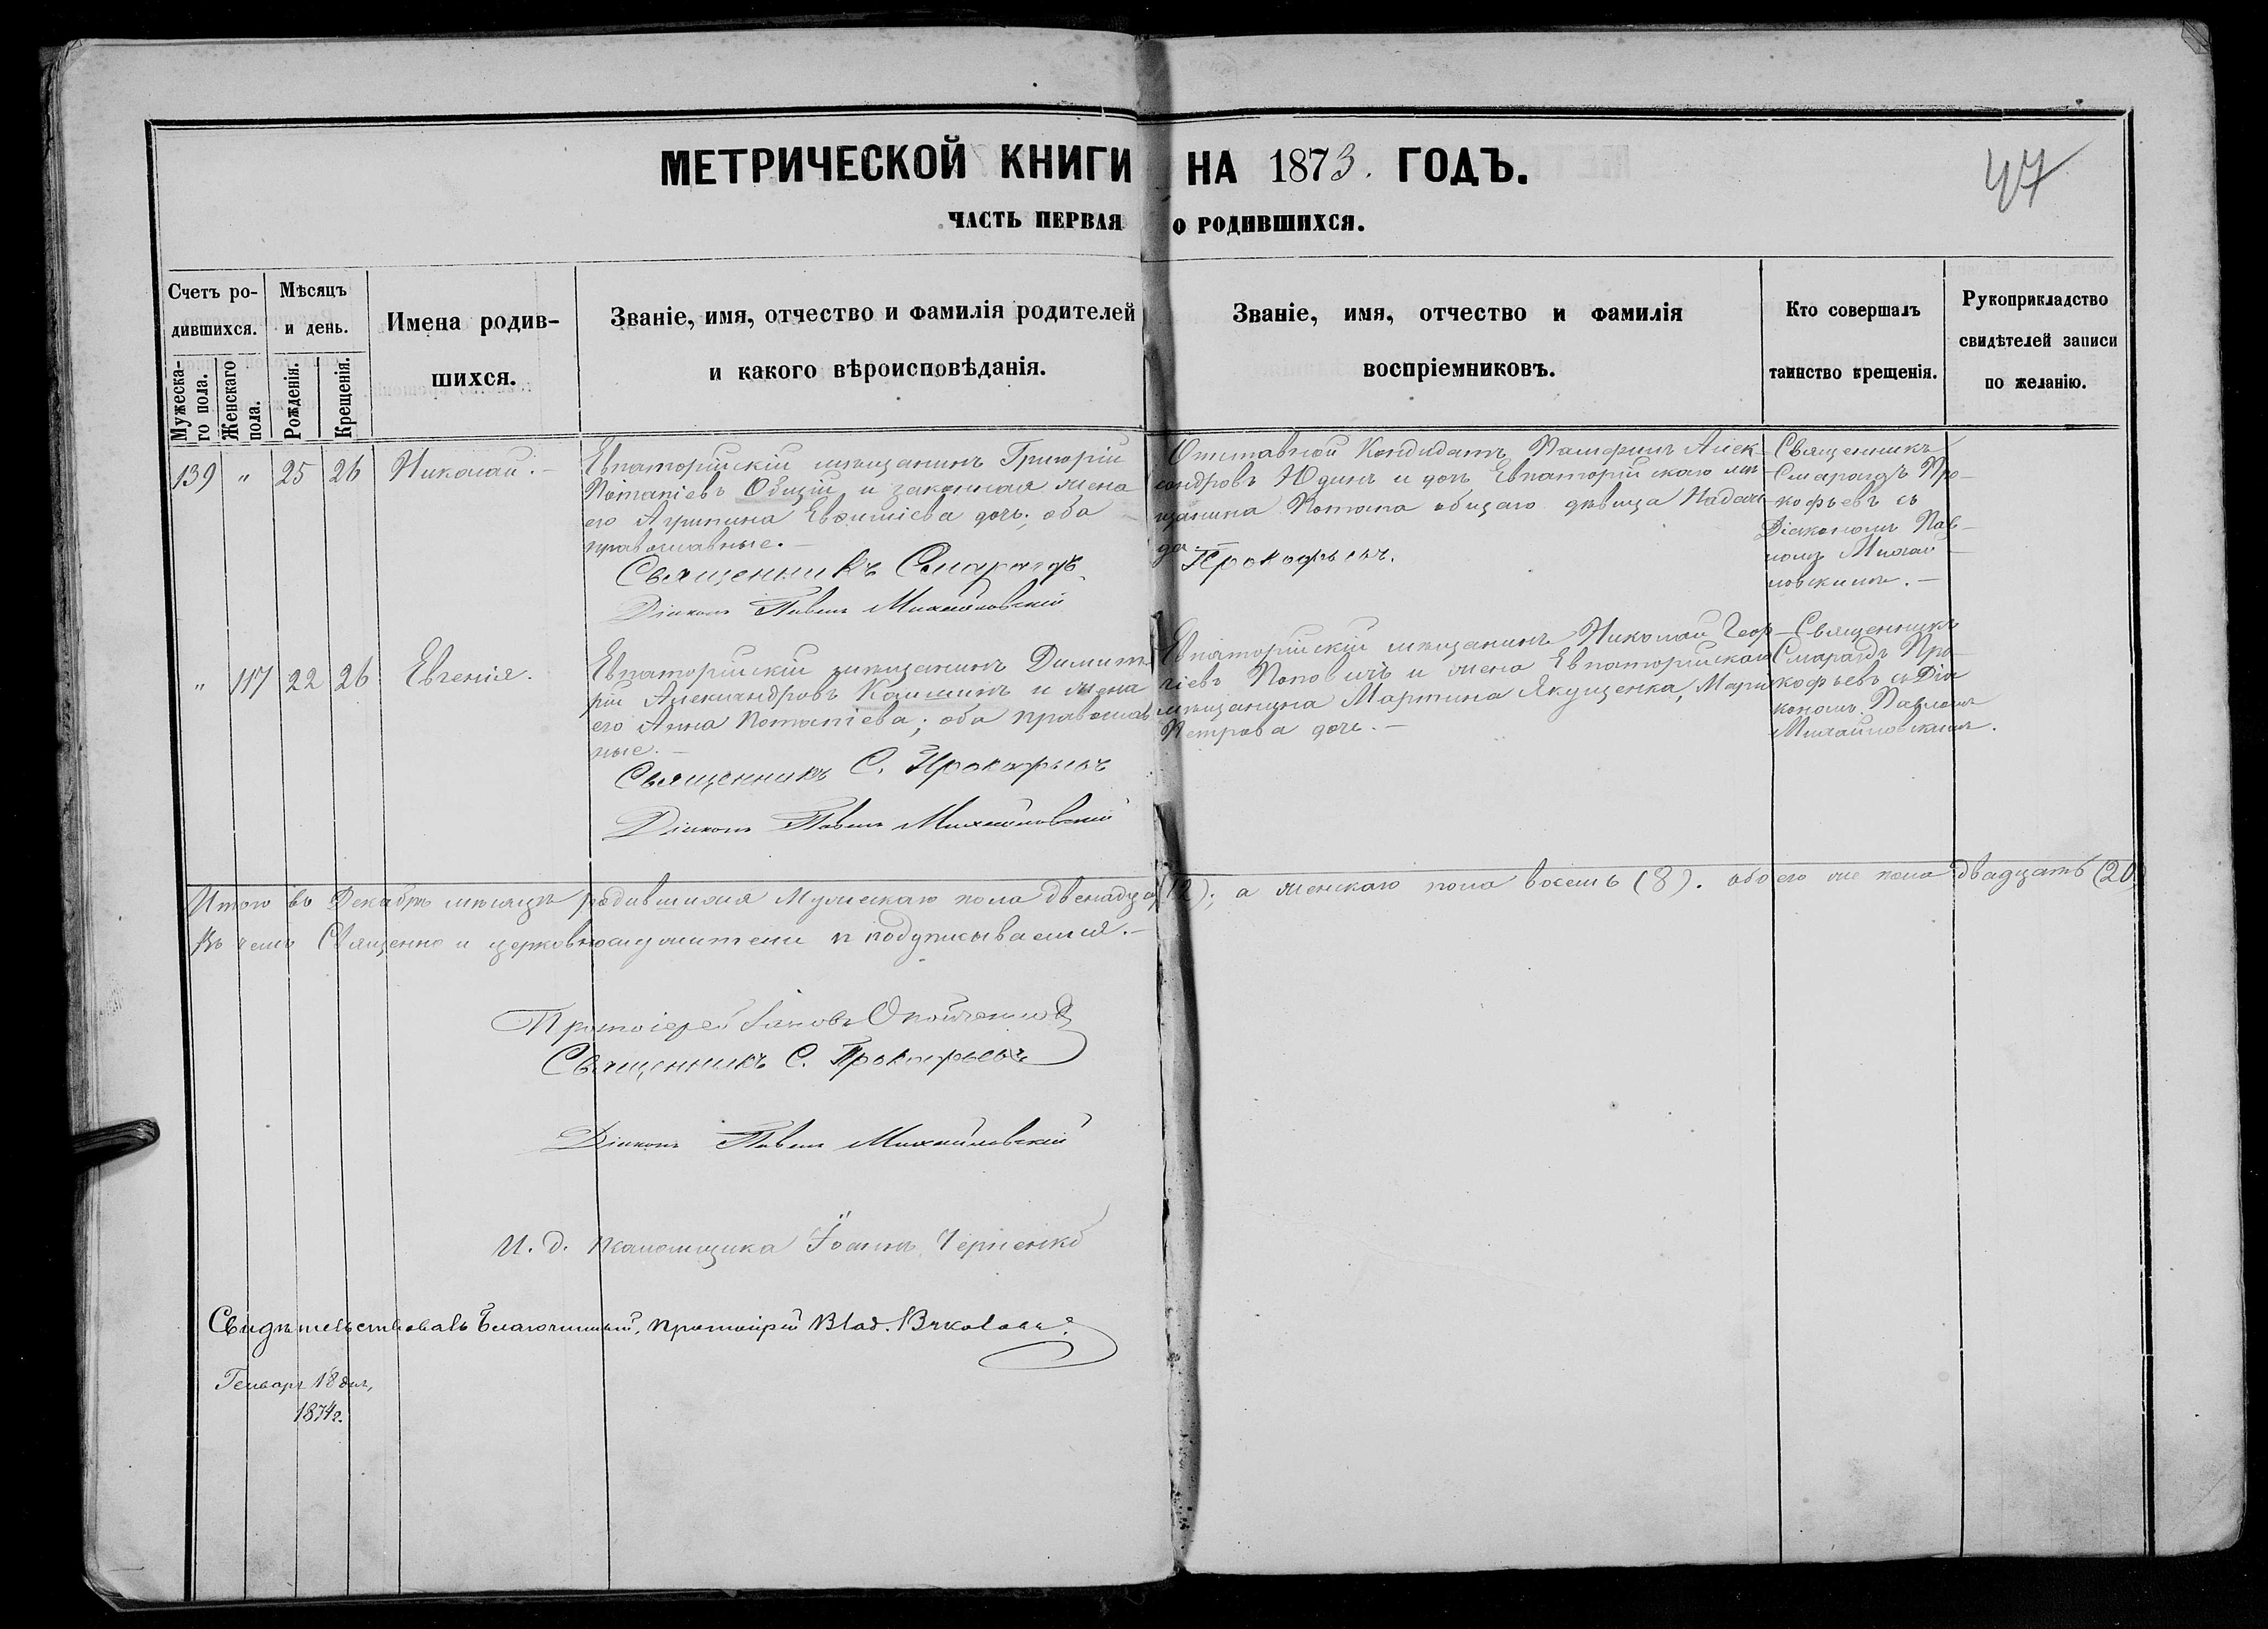 МЕТРИЧЕСКОЙ КНИГИ НА 1873. ГОДЪ.
47
ЧАСТЬ ПЕРВАЯ О РОДИВШИХСЯ.
Счетъ ро-
дившихся.
Мужеска-
го пола.
Женскаго
пола.
Мѣсяцъ
и день.
Рожденія.
Крещенія.
Имена родив-
шихся.
Званіе, имя, отчество и фамилія родителей
и какого вѣроисповѣданія.
Званіе, имя, отчество и фамилія
воспріемниковъ.
Кто совершалъ
таинство крещенія.
Рукоприкладство
свидѣтелей записи
по желанію.
139 " 25 26 Николай. –
Евпаторійскій мѣщанинъ Григорій
Потапіевъ Общій и законная жена
его Агрипина Евфиміева дочь; оба
православные. –
Отставной Кандидатъ Памфилъ Алек-
сандровъ Юдинъ и дочь Евпаторійскаго мѣ-
щанина Потапа общаго дѣвица Надеж-
да. –
Священникъ
Смарагдъ Про-
кофьевъ съ
Діакономъ Пав-
ломъ Михай-
ловскимъ. –
Священникъ Смарагдъ Прокофьевъ.
Діаконъ Павелъ Михайловскій
" 117 22 26 Евгенія.
Евпаторійскій мѣщанинъ Димит-
рій Александровъ Кашинъ и жена
его Анна Потапіева; оба православ-
ные. –
Евпаторійскій мѣщанинъ Николай Геор-
гіевъ Поповичъ и жена Евпаторійскаго
мѣщанина Мартина Якущенка, Марія
Петрова дочь. –
Священникъ
Смарагдъ Про-
кофьевъ съ Діа-
кономъ Павломъ
Михайловскимъ.
Священникъ С. Прокофьевъ
Діаконъ Павелъ Михайловскій
Итого въ Декабрѣ мѣсяцѣ родившихся Мужескаго пола двенадца (12); а женскаго пола восемь (8). обоего же пола двадцать (20)
Въ чемъ Священно и церковнослужители и подписываемся. –
Протоіерей Іаковъ
Священникъ С. Прокофьевъ
Діаконъ Павелъ Михайловскій
И. д. Псаломщика Іоаннъ Черненко
Свидѣтельствовалъ Благочинный, протоіерей Влад.
Генваря 18 дня,
1874 г.